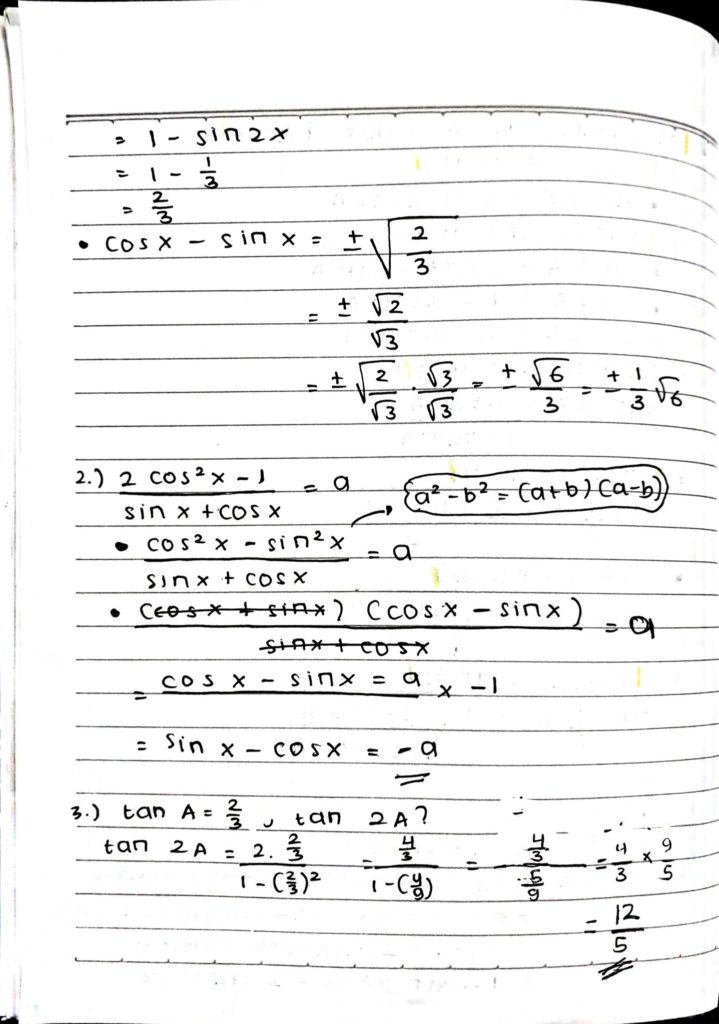 = 1 - sin 2x
= 1 - 1/3
= 2/3
• cos x - sin x = ± √(2/3)
= ± √2/√3
= ± √2/√3 · √3/√3 = ± √6/3 = ± 1/3 √6
2.) (2 cos² x - 1)/(sin x + cos x) = a (a² - b² = (a+b) (a-b))
• (cos² x - sin² x)/(sin x + cos x) = a
• (cos x + sin x) (cos x - sin x)/(sin x + cos x) = a
= cos x - sin x = a x -1
= sin x - cos x = - a
3.) tan A = 2/3, tan 2A?
tan 2A = (2. 2/3)/(1 - (2/3)²) = (4/3)/(1 - (4/9)) = (4/3)/(5/9) = 4/3 x 9/5
= 12/5